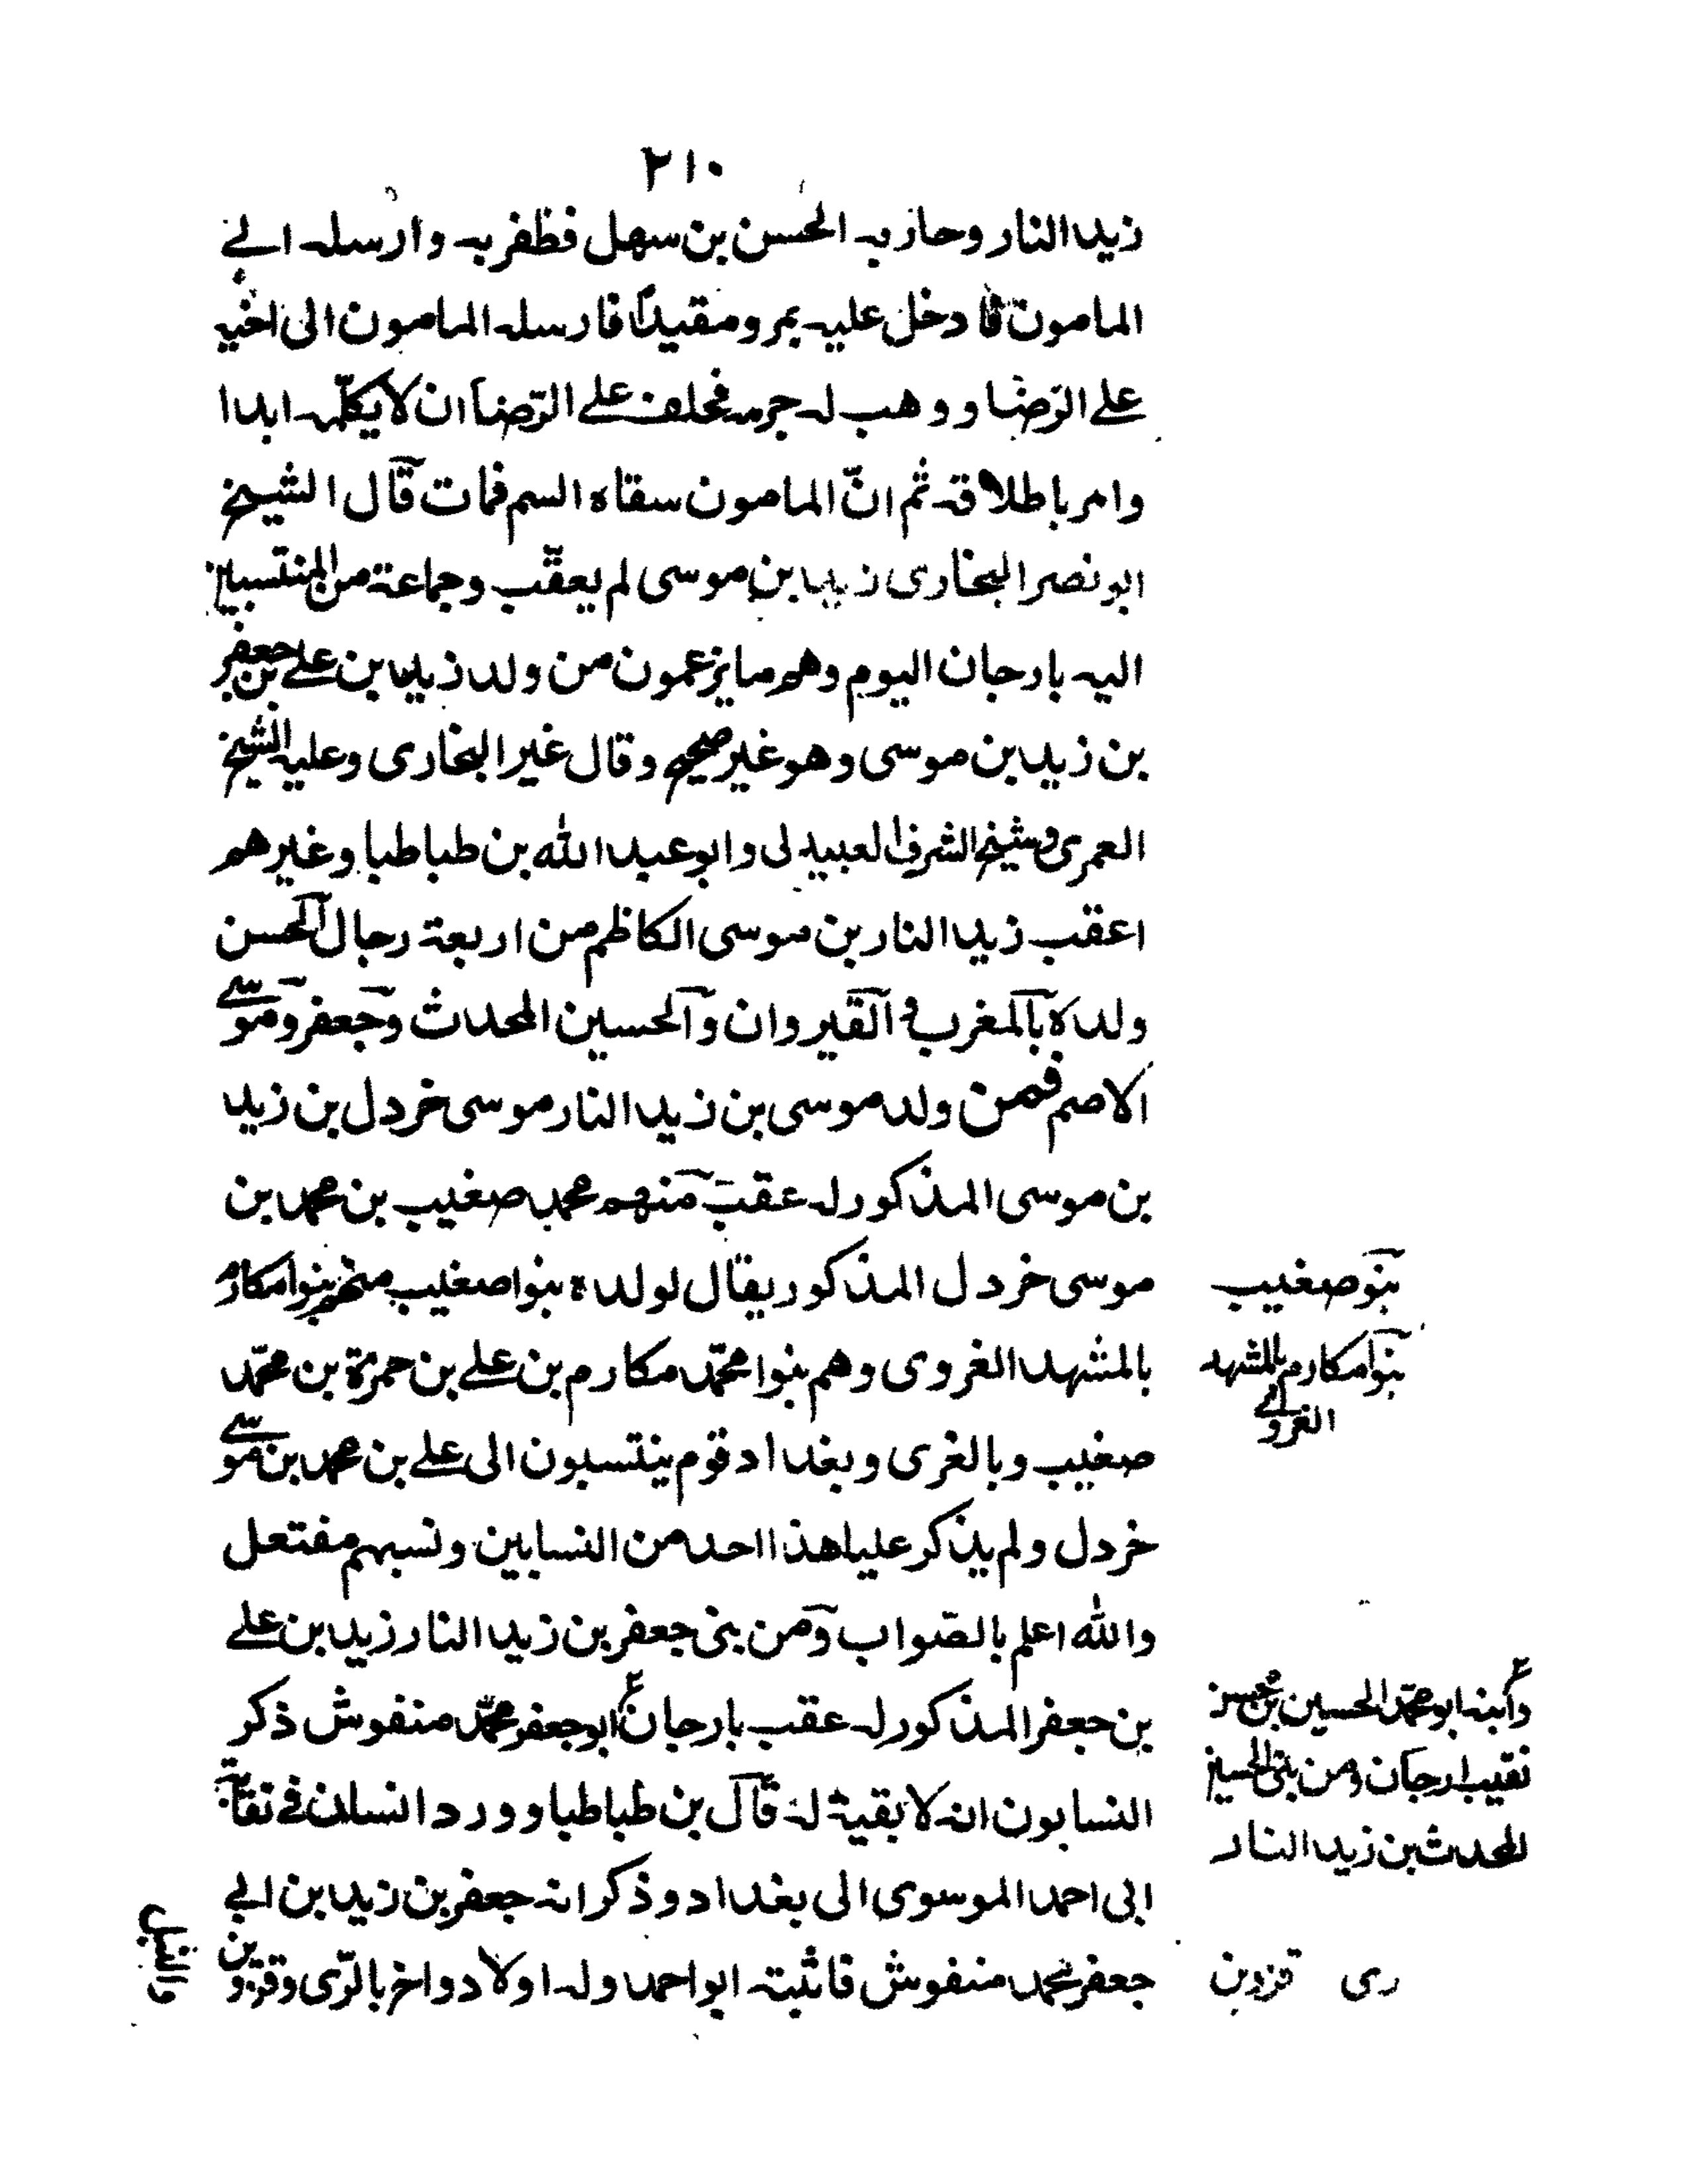 ٢١٠
زيد النار وحاربه الحسن بن سهل فظفر به وارسله الى
المامون فادخل عليه بمرو مقيدا فارسله المامون الى اخيه
على الرّضا ووهب له جرمه فحلف على الرّضا ان لا يكلّمه ابدا
وامر باطلاقه ثم انّ المامون سقاه السم فمات قال الشيخ
ابو نصر البخارى زيد بن موسى لم يعقّب وجماعة من المنتسبين
اليه بارجان اليوم وهم ما يزعمون من ولد زيد بن على بن جعفر
بن زيد بن موسى وهو غير صحيح وقال غير البخارى وعليه الشيخ
العمرى وشيخ الشرف العبيدلى وابو عبد الله بن طباطبا وغيرهم
اعقب زيد النار بن موسى الكاظم من اربعة رجال الحسن
ولده بالمغرب فى القيروان والحسين المحدث وجعفر وموسى
الاصم فمن ولد موسى بن زيد النار موسى خردل بن زيد
بن موسى المذكور له عقب منهم محمد صغيب بن محمد بن
موسى خردل المذكور يقال لولده بنوا صغيب منهم بنوا مكارم
بنو صغيب
بالمشهد الغروى وهم بنوا محمّد مكارم بن على بن حمزة بن محمّد
بنوا مكارم بالمشهد
الغروى
صغيب وبالغرى وبغداد قوم ينتسبون الى على بن محمد بن موسى
خردل ولم يذكر عليا هذا احد من النسابين ونسبهم مفتعل
والله اعلم بالصّواب ومن بنى جعفر بن زيد النار زيد بن على
بن جعفر المذكور له عقب بارجان ابو جعفر محمّد منفوش ذكر
وابنه ابو محمّد الحسين بن
نقيب ارجان ومن بنى الحسين
المحدث بن زيد النار
النسابون انه لا بقية له قال بن طباطبا وورد انسان فى نقابة
ابى احمد الموسوى الى بغداد وذكر انه جعفر بن زيد بن ابى
جعفر محمد منفوش فاثبته ابو احمد وله اولاد واخ بالرّى وقزوين
رى قزوين